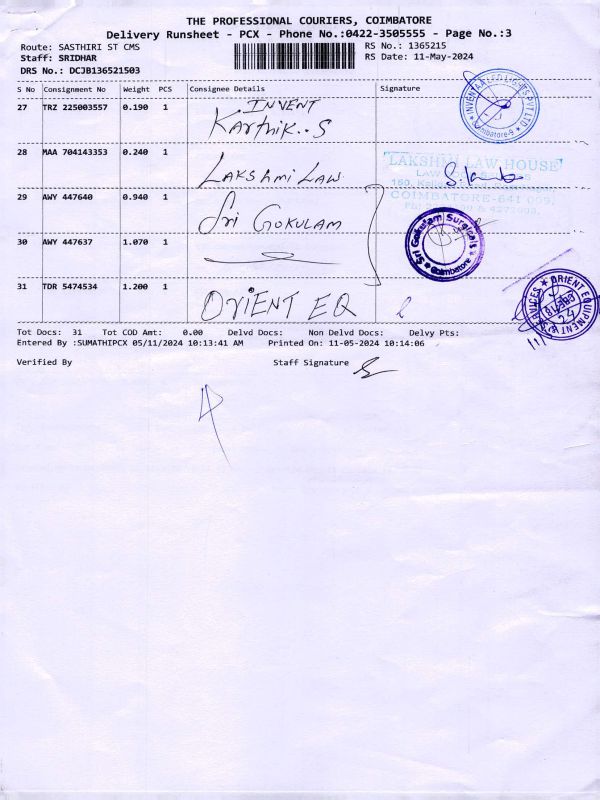 THE PROFESSIONAL COURIERS, COIMBATORE
Delivery Runsheet - PCX - Phone No.:0422-3505555 - Page No.:3
Route: SASTHIRI ST CMS
RS No.: 1365215
Staff: SRIDHAR
RS Date: 11-May-2024
DRS No.: DCJB136521503
S No Consignment No Weight PCS Consignee Details Signature
27 TRZ 225003557 0.190 1 INVENT
Karthik..S
28 MAA 704143353 0.240 1 LAKSHMI LAW
LAKSHMI LAW HOUSE
COIMBATORE-641 009
29 AWY 447640 0.940 1 Sri GOKULAM
Sri Gokulam Surgicals
Coimbatore
30 AWY 447637 1.070 1
31 TDR 5474534 1.200 1 ORIENT EQ
ORIENT EQUIPMENT
Tot Docs: 31 Tot COD Amt: 0.00 Delvd Docs: Non Delvd Docs: Delvy Pts:
Entered By :SUMATHIPCX 05/11/2024 10:13:41 AM Printed On: 11-05-2024 10:14:06
Verified By Staff Signature